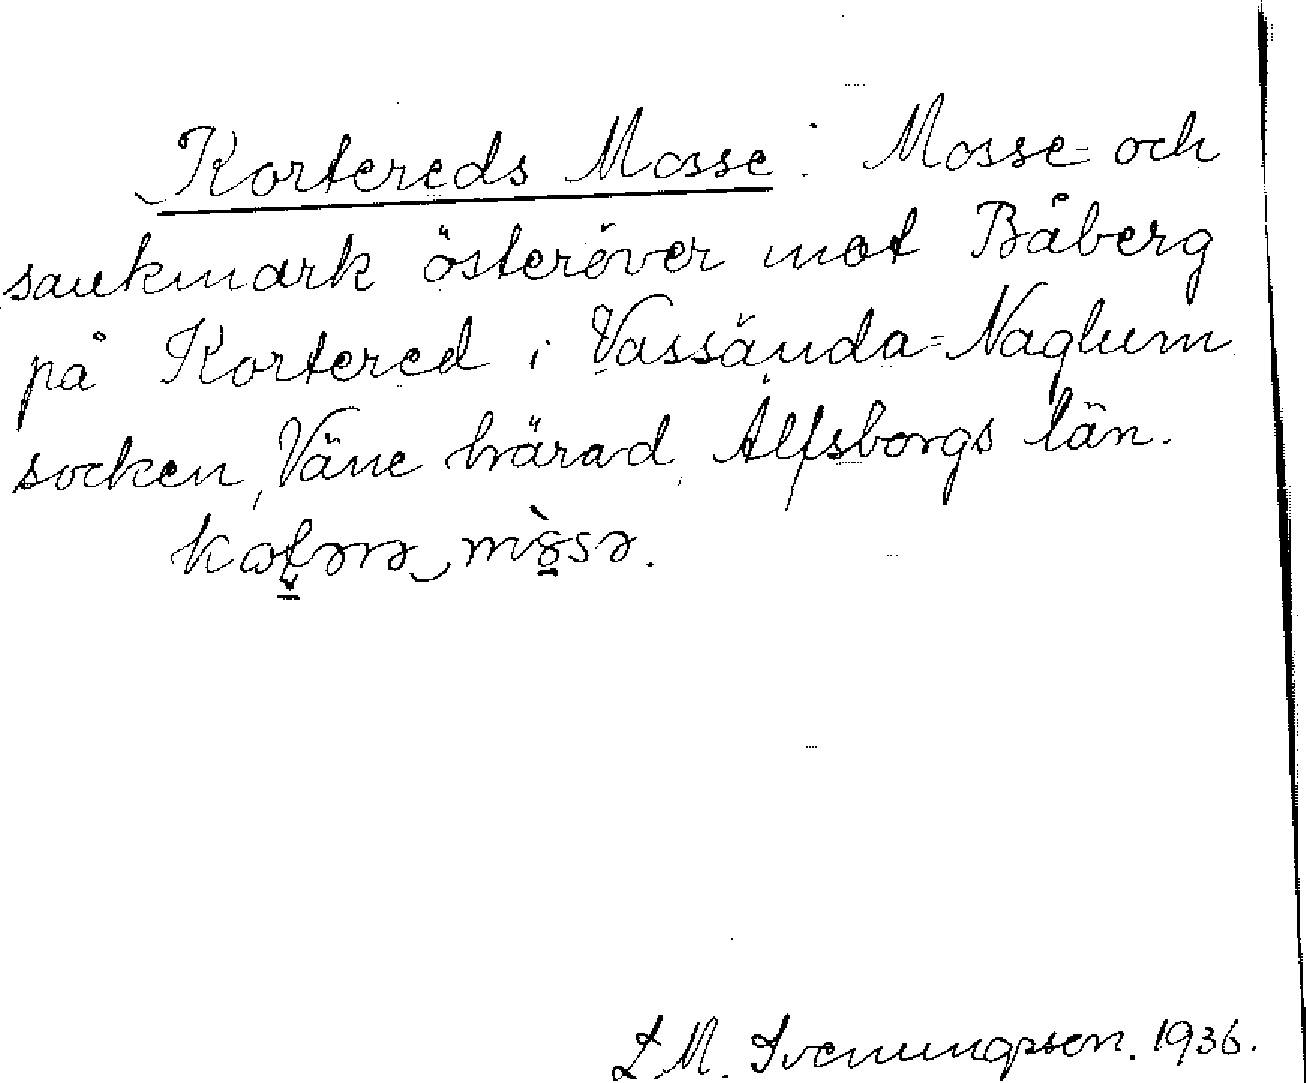 Kortereds Mosse: Mosse- och
sankmark österöver mot Båberg
på Kortered i Vassända-Naglum
socken, Väne härad, Älfsborgs län.
L M. Svenungsson. 1936.